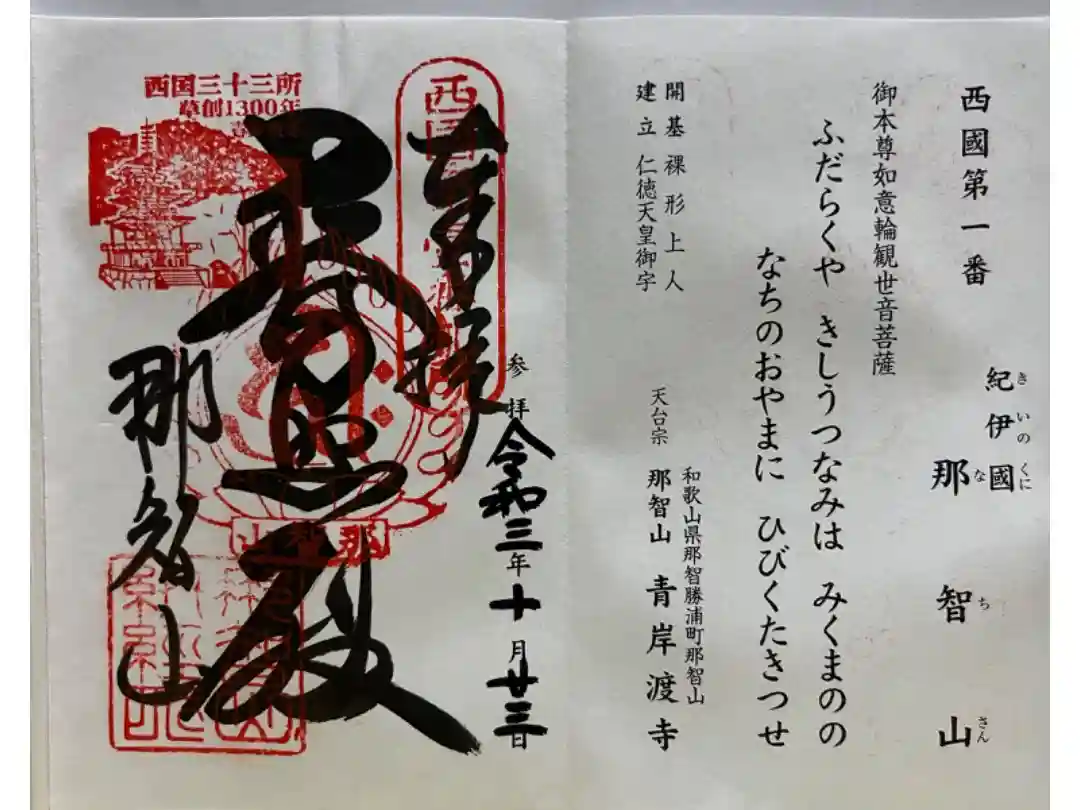 西國第一番
紀伊國
きいのくに
那智山
なちさん
御本尊如意輪観世音菩薩
ふだらくや きしうつなみは みくまのの
なちのおやまに ひびくたきつせ
開基 裸形上人
建立 仁徳天皇御宇
和歌山県那智勝浦町那智山
天台宗 那智山 青岸渡寺
参拝 令和三年十月廿三日
奉拝
普照殿
那智山
西国三十三所
草創1300年
那智山